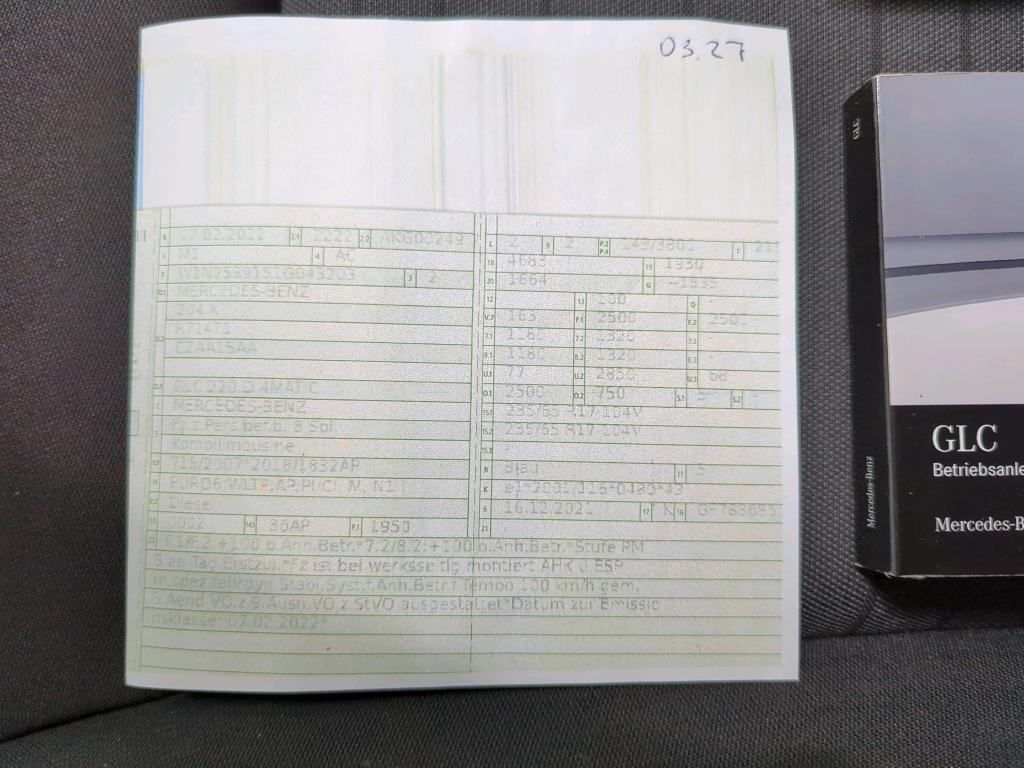 03.27
B 07.02.2022 2.1 2222 2.2
L 2 9 2 P.2 P.4 143/3800 T
J M1 4 AC
18 4683 19 1930
E W1N2539151G043203 3 2
20 1664 G
D.1 MERCEDES-BENZ
12 - 13 100 Q -
204 X
V.7 163 F.1 2500 F.2 2500
D.2 R714T1
7.1 1180 7.2 1320 7.3 -
CZAA15AA
8.1 1180 8.2 1320 8.3 -
U.1 77 U.2 2850 U.3 68
D.3 GLC 220 D 4MATIC
O.1 2500 O.2 750 S.1 5 S.2 -
2 MERCEDES-BENZ
15.1 235/65 R17 104V
5 Fz.z.Pers.bef.b. 8 Spl.
15.2 235/65 R17 104V
Kombilimousine
15.3 -
V.9 715/2007*2018/1832AP
R Blau 11 5
14
K e1*2001/116*0480*43
P.3 Diesel
6 16.12.2021 17 K 16
10 0002 14.1 36AP P.1 1950
21 -
22 F.1/F.2 +100 b.Anh.Betr.*7.2/8.2:+100 b.Anh.Betr.*Stufe PM
5 ab Tag Erstzul.*Fz ist bei werksseitig montiert AHK u ESP
m.spez.fahrdyn.Stabil.Syst.f.Anh.Betr.f.Tempo 100 km/h gem.
9.Aend VO.z.9.Ausn.VO z StVO ausgestattet*Datum zur Emissio
nsklasse: 07.02.2022*
GLC
Mercedes-Benz
GLC
Mercedes-B